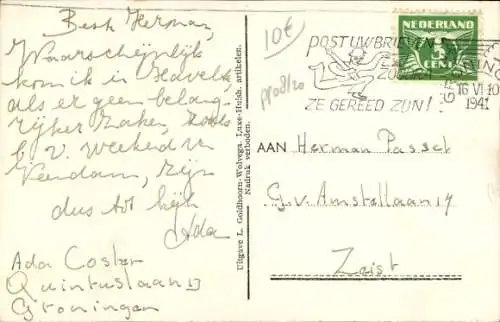 Beste Herman,
Waarschijnlijk
kom ik in Havelte
als er geen belang-
rijker zaken, zoals
b.v. Weekend in
Veendam, zijn
dus tot kijk
Ada
Ada Coster
Quintuslaan 13
Groningen
Uitgave L. Goldhoorn-Wolvega. Luxe-Huish. artikelen.
Nadruk verboden.
10€
NEDERLAND
5
CENT
POST UW BRIEVEN
ZE GEREED ZIJN!
GRONINGEN
16 VI 10
1941
AAN Herman Passet
G. v. Amstellaan 17
Zeist